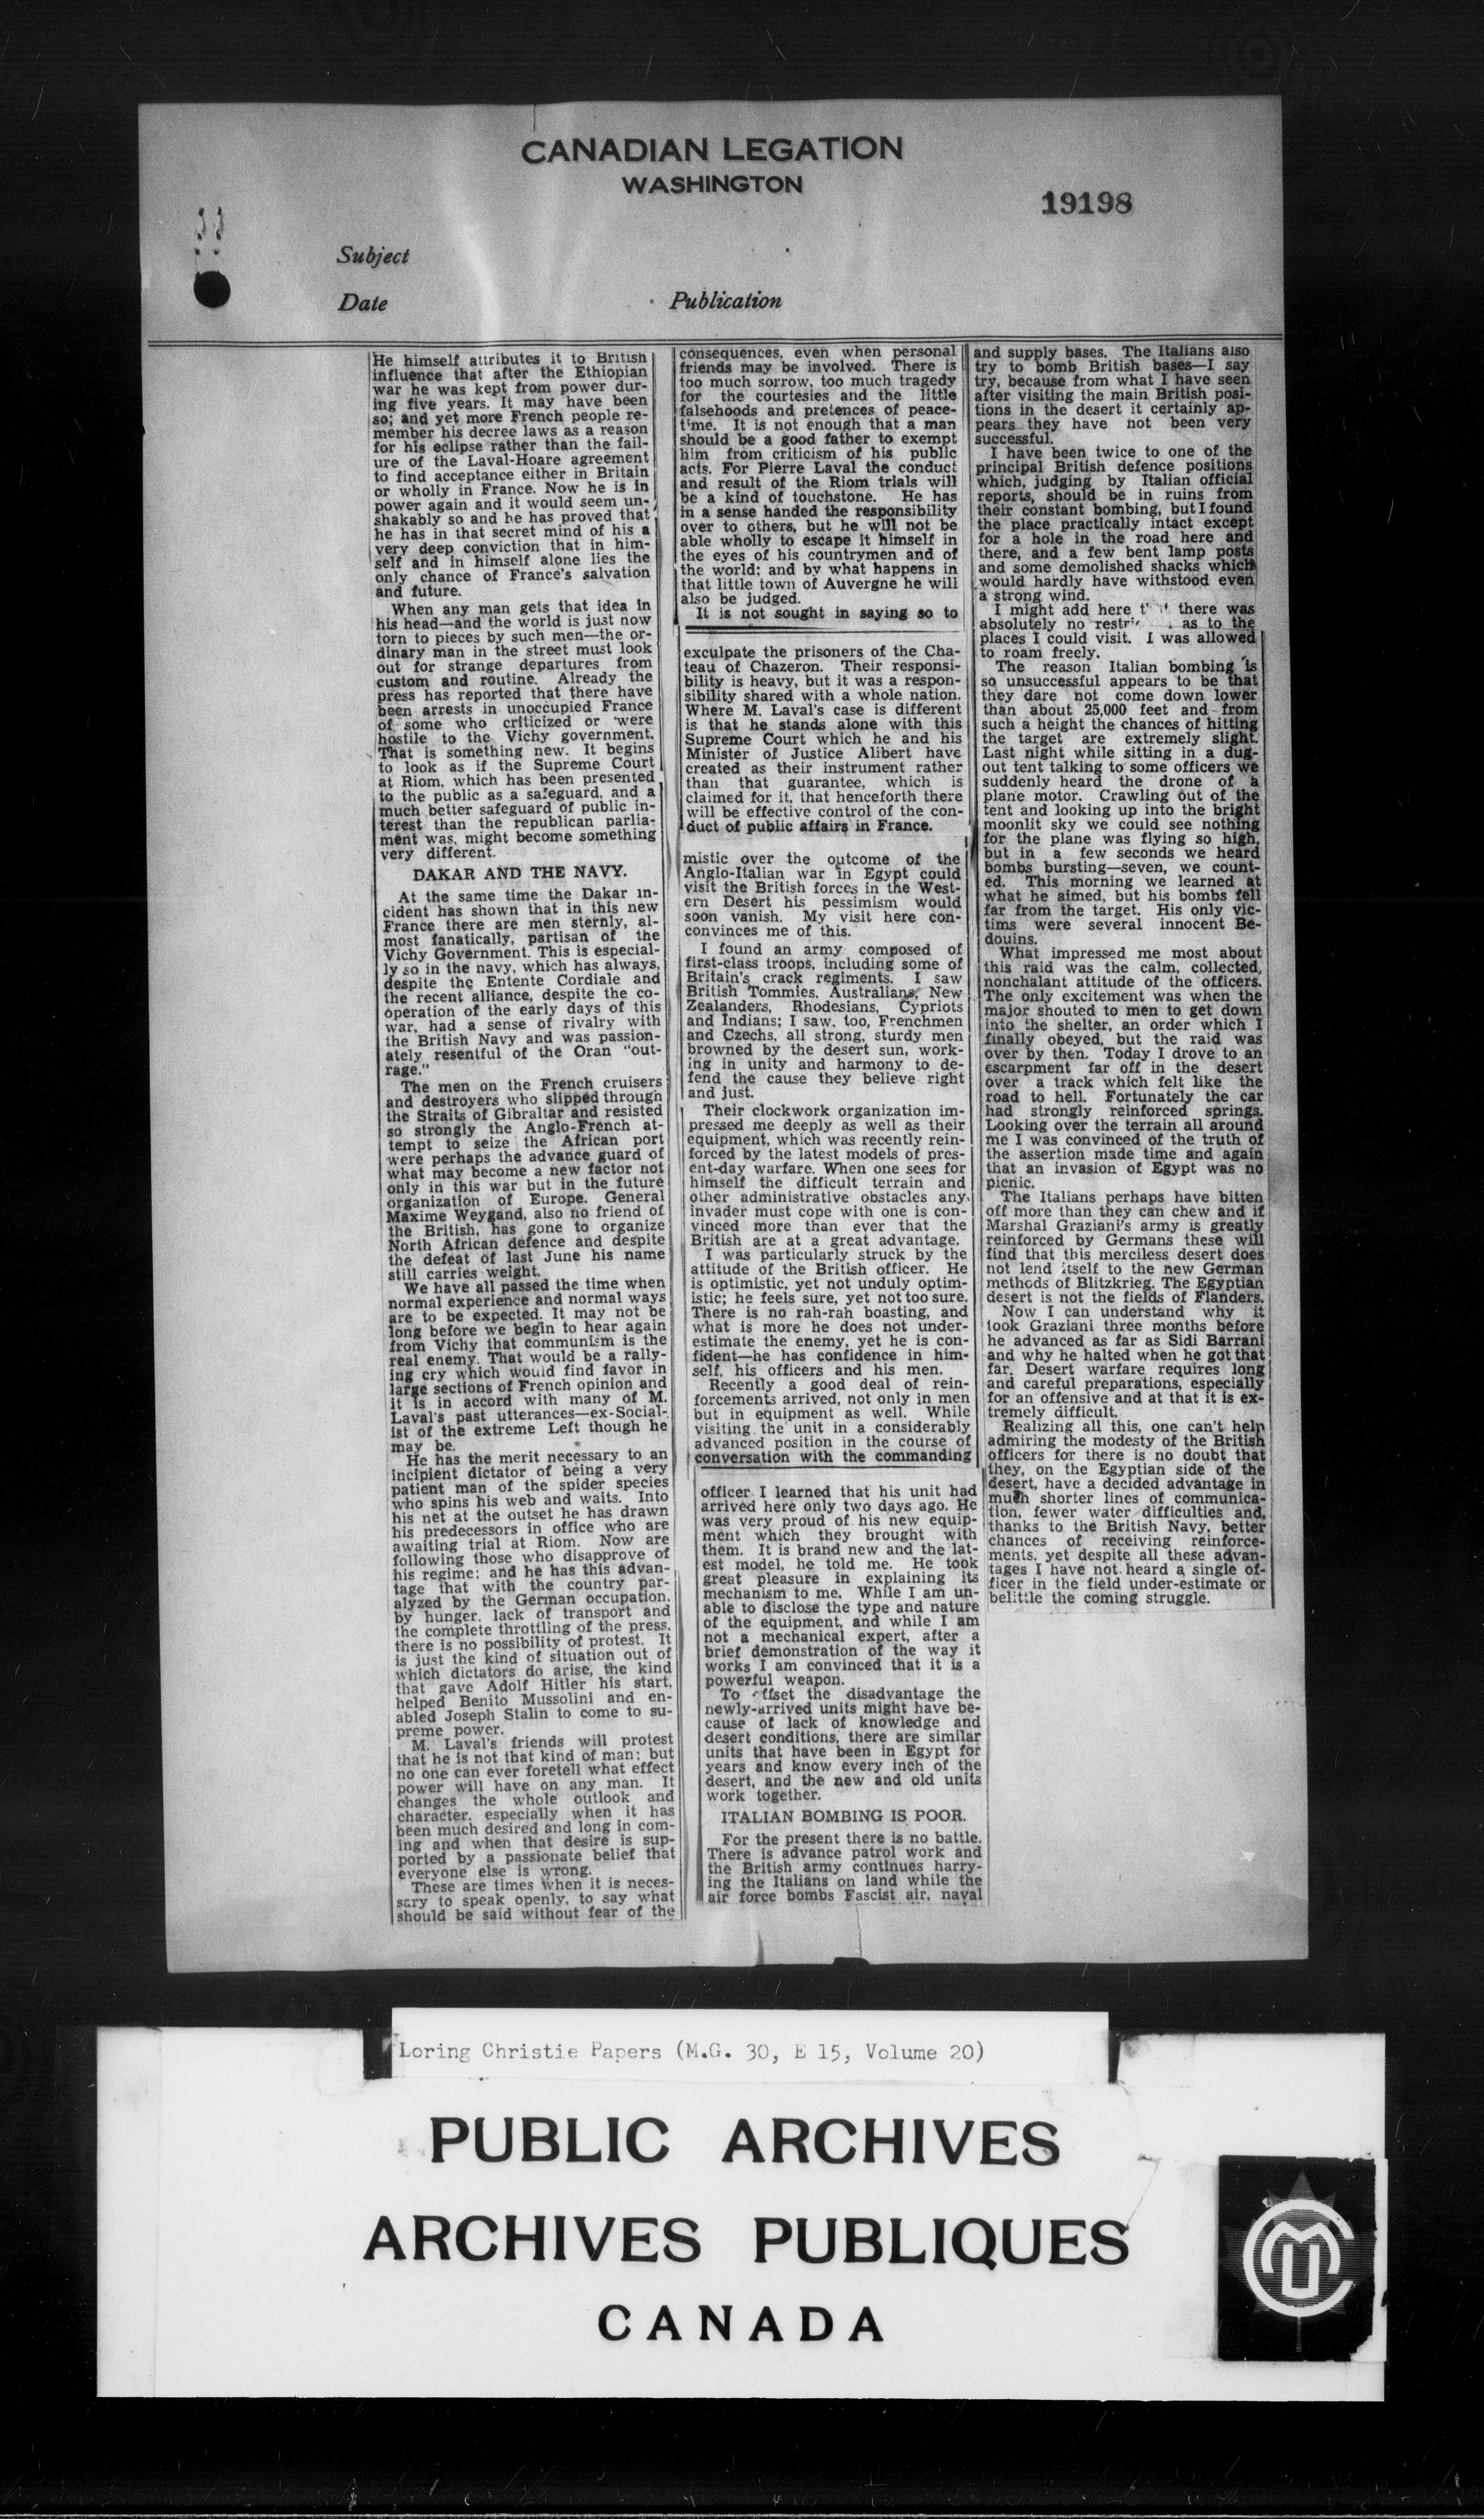 CANADIAN LEGATION
WASHINGTON
19198
Subject
Date
Publication
He himself attributes it to British
influence that after the Ethiopian
war he was kept from power dur-
ing five years. It may have been
so; and yet more French people re-
member his decree laws as a reason
for his eclipse rather than the fail-
ure of the Laval-Hoare agreement
to find acceptance either in Britain
or wholly in France. Now he is in
power again and it would seem un-
shakably so and he has proved that
he has in that secret mind of his a
very deep conviction that in him-
self and in himself alone lies the
only chance of France's salvation
and future.
When any man gets that idea in
his head—and the world is just now
torn to pieces by such men—the or-
dinary man in the street must look
out for strange departures from
custom and routine. Already the
press has reported that there have
been arrests in unoccupied France
of some who criticized or were
hostile to the Vichy government.
That is something new. It begins
to look as if the Supreme Court
at Riom, which has been presented
to the public as a safeguard, and a
much better safeguard of public in-
terest than the republican parlia-
ment was, might become something
very different.
DAKAR AND THE NAVY.
At the same time the Dakar in-
cident has shown that in this new
France there are men sternly, al-
most fanatically, partisan of the
Vichy Government. This is especial-
ly so in the navy, which has always,
despite the Entente Cordiale and
the recent alliance, despite the co-
operation of the early days of this
war, had a sense of rivalry with
the British Navy and was passion-
ately resentful of the Oran "out-
rage."
The men on the French cruisers
and destroyers who slipped through
the Straits of Gibraltar and resisted
so strongly the Anglo-French at-
tempt to seize the African port
were perhaps the advance guard of
what may become a new factor not
only in this war but in the future
organization of Europe. General
Maxime Weygand, also no friend of
the British, has gone to organize
North African defence and despite
the defeat of last June his name
still carries weight.
We have all passed the time when
normal experience and normal ways
are to be expected. It may not be
long before we begin to hear again
from Vichy that communism is the
real enemy. That would be a rally-
ing cry which would find favor in
large sections of French opinion and
it is in accord with many of M.
Laval's past utterances—ex-Social-
ist of the extreme Left though he
may be.
He has the merit necessary to an
incipient dictator of being a very
patient man of the spider species
who spins his web and waits. Into
his net at the outset he has drawn
his predecessors in office who are
awaiting trial at Riom. Now are
following those who disapprove of
his regime; and he has this advan-
tage that with the country par-
alyzed by the German occupation,
by hunger, lack of transport and
the complete throttling of the press,
there is no possibility of protest. It
is just the kind of situation out of
which dictators do arise, the kind
that gave Adolf Hitler his start,
helped Benito Mussolini and en-
abled Joseph Stalin to come to su-
preme power.
M. Laval's friends will protest
that he is not that kind of man; but
no one can ever foretell what effect
power will have on any man. It
changes the whole outlook and
character, especially when it has
been much desired and long in com-
ing and when that desire is sup-
ported by a passionate belief that
everyone else is wrong.
These are times when it is neces-
sary to speak openly, to say what
should be said without fear of the
consequences, even when personal
friends may be involved. There is
too much sorrow, too much tragedy
for the courtesies and the little
falsehoods and pretences of peace-
time. It is not enough that a man
should be a good father to exempt
him from criticism of his public
acts. For Pierre Laval the conduct
and result of the Riom trials will
be a kind of touchstone. He has
in a sense handed the responsibility
over to others, but he will not be
able wholly to escape it himself in
the eyes of his countrymen and of
the world; and by what happens in
that little town of Auvergne he will
also be judged.
It is not sought in saying so to
exculpate the prisoners of the Cha-
teau of Chazeron. Their responsi-
bility is heavy, but it was a respon-
sibility shared with a whole nation.
Where M. Laval's case is different
is that he stands alone with this
Supreme Court which he and his
Minister of Justice Alibert have
created as their instrument rather
than that guarantee, which is
claimed for it, that henceforth there
will be effective control of the con-
duct of public affairs in France.
mistic over the outcome of the
Anglo-Italian war in Egypt could
visit the British forces in the West-
ern Desert his pessimism would
soon vanish. My visit here con-
convinces me of this.
I found an army composed of
first-class troops, including some of
Britain's crack regiments. I saw
British Tommies, Australians, New
Zealanders, Rhodesians, Cypriots
and Indians; I saw, too, Frenchmen
and Czechs, all strong, sturdy men
browned by the desert sun, work-
ing in unity and harmony to de-
fend the cause they believe right
and just.
Their clockwork organization im-
pressed me deeply as well as their
equipment, which was recently rein-
forced by the latest models of pres-
ent-day warfare. When one sees for
himself the difficult terrain and
other administrative obstacles any
invader must cope with one is con-
vinced more than ever that the
British are at a great advantage.
I was particularly struck by the
attitude of the British officer. He
is optimistic, yet not unduly optim-
istic; he feels sure, yet not too sure.
There is no rah-rah boasting, and
what is more he does not under-
estimate the enemy, yet he is con-
fident—he has confidence in him-
self, his officers and his men.
Recently a good deal of rein-
forcements arrived, not only in men
but in equipment as well. While
visiting the unit in a considerably
advanced position in the course of
conversation with the commanding
officer I learned that his unit had
arrived here only two days ago. He
was very proud of his new equip-
ment which they brought with
them. It is brand new and the lat-
est model, he told me. He took
great pleasure in explaining its
mechanism to me. While I am un-
able to disclose the type and nature
of the equipment, and while I am
not a mechanical expert, after a
brief demonstration of the way it
works I am convinced that it is a
powerful weapon.
To offset the disadvantage the
newly-arrived units might have be-
cause of lack of knowledge and
desert conditions, there are similar
units that have been in Egypt for
years and know every inch of the
desert, and the new and old units
work together.
ITALIAN BOMBING IS POOR.
For the present there is no battle.
There is advance patrol work and
the British army continues harry-
ing the Italians on land while the
air force bombs Fascist air, naval
and supply bases. The Italians also
try to bomb British bases—I say
try, because from what I have seen
after visiting the main British posi-
tions in the desert it certainly ap-
pears they have not been very
successful.
I have been twice to one of the
principal British defence positions
which, judging by Italian official
reports, should be in ruins from
their constant bombing, but I found
the place practically intact except
for a hole in the road here and
there, and a few bent lamp posts
and some demolished shacks which
would hardly have withstood even
a strong wind.
I might add here there was
absolutely no as to the
places I could visit. I was allowed
to roam freely.
The reason Italian bombing is
so unsuccessful appears to be that
they dare not come down lower
than about 25,000 feet and from
such a height the chances of hitting
the target are extremely slight.
Last night while sitting in a dug-
out tent talking to some officers we
suddenly heard the drone of a
plane motor. Crawling out of the
tent and looking up into the bright
moonlit sky we could see nothing
for the plane was flying so high,
but in a few seconds we heard
bombs bursting—seven, we count-
ed. This morning we learned at
what he aimed, but his bombs fell
far from the target. His only vic-
tims were several innocent Be-
douins.
What impressed me most about
this raid was the calm, collected,
nonchalant attitude of the officers.
The only excitement was when the
major shouted to men to get down
into the shelter, an order which I
finally obeyed, but the raid was
over by then. Today I drove to an
escarpment far off in the desert
over a track which felt like the
road to hell. Fortunately the car
had strongly reinforced springs.
Looking over the terrain all around
me I was convinced of the truth of
the assertion made time and again
that an invasion of Egypt was no
picnic.
The Italians perhaps have bitten
off more than they can chew and if
Marshal Graziani's army is greatly
reinforced by Germans these will
find that this merciless desert does
not lend itself to the new German
methods of Blitzkrieg. The Egyptian
desert is not the fields of Flanders.
Now I can understand why it
took Graziani three months before
he advanced as far as Sidi Barrani
and why he halted when he got that
far. Desert warfare requires long
and careful preparations, especially
for an offensive and at that it is ex-
tremely difficult.
Realizing all this, one can't help
admiring the modesty of the British
officers for there is no doubt that
they, on the Egyptian side of the
desert, have a decided advantage in
much shorter lines of communica-
tion, fewer water difficulties and,
thanks to the British Navy, better
chances of receiving reinforce-
ments, yet despite all these advan-
tages I have not heard a single of-
ficer in the field under-estimate or
belittle the coming struggle.
Loring Christie Papers (M.G. 30, E 15, Volume 20)
PUBLIC ARCHIVES
ARCHIVES PUBLIQUES
CANADA